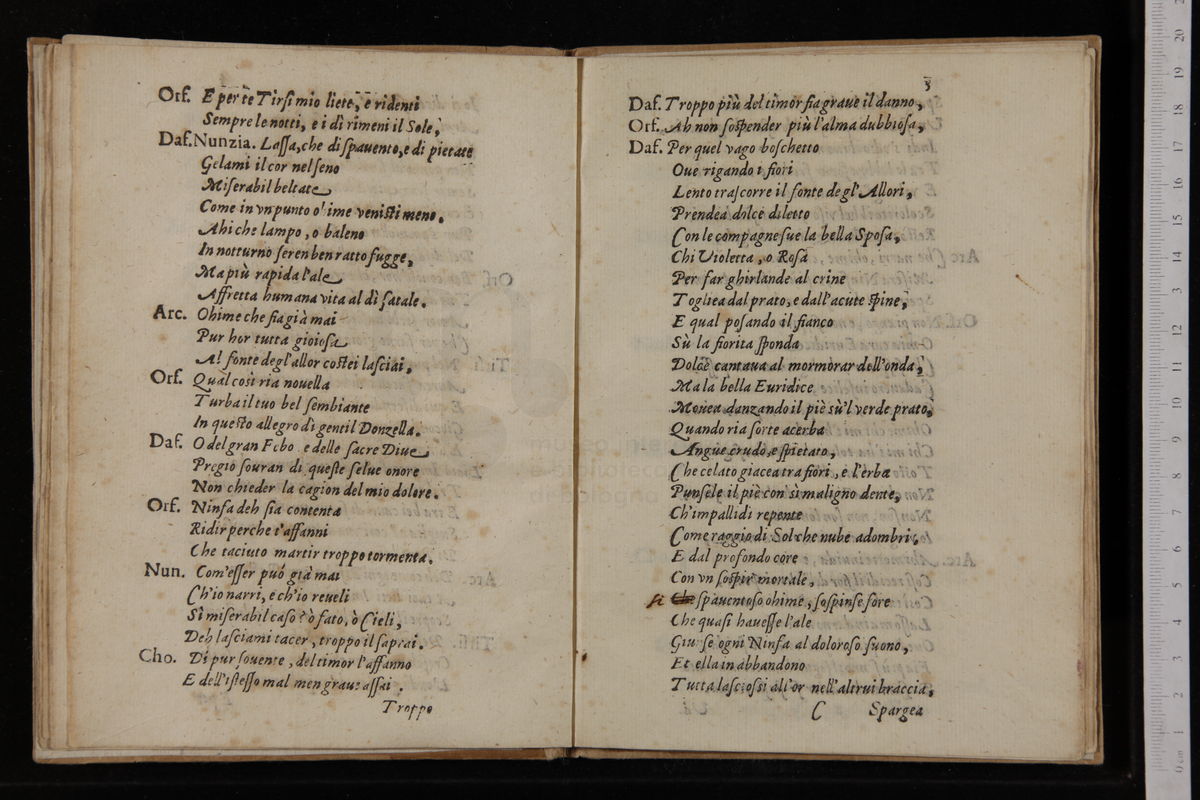 Orf. E per te Tirsi mio liete, e ridenti
Sempre le notti, e i dì rimeni il Sole,
Daf. Nunzia. Lassa, che di spauento, e di pietate
Gelami il cor nel seno
Miserabil beltate
Come in vn punto ohime venisti meno.
Ahi che lampo, o baleno
In notturno seren ben ratto fugge,
Ma più rapida l'ale
Affretta humana vita al dì fatale.
Arc. Ohime che fia già mai
Pur hor tutta gioiosa
Al fonte degl'allor costei lasciai,
Orf. Qual così ria nouella
Turba il tuo bel sembiante
In questo allegro dì gentil Donzella.
Daf. O del gran Febo e delle sacre Diue
Pregio souran di queste selue onore
Non chieder la cagion del mio dolore.
Orf. Ninfa deh sia contenta
Ridir perche t'affanni
Che taciuto martir troppo tormenta.
Nun. Com'esser può già mai
Ch'io narri, e ch'io reueli
Sì miserabil caso? ò fato, ò Cieli,
Deh lasciami tacer, troppo il saprai.
Cho. Dì pur souente, del timor l'affanno
E dell'istesso mal men graue assai.
Troppo
3
Daf. Troppo più del timor fia graue il danno,
Orf. Ah non sospender più l'alma dubbiosa,
Daf. Per quel vago boschetto
Oue rigando i fiori
Lento trascorre il fonte degl'Allori,
Prendea dolce diletto
Con le compagne sue la bella Sposa,
Chi Violetta, o Rosa
Per far ghirlande al crine
Togliea dal prato, e dall'acute spine,
E qual posando il fianco
Sù la fiorita sponda
Dolce cantaua al mormorar dell'onda,
Ma la bella Euridice
Mouea danzando il piè sù'l verde prato,
Quando ria sorte acerba
Angue crudo, e spietato,
Che celato giacea tra fiori, e l'erba
Punsele il piè con sì maligno dente,
Ch'impallidi repente
Come raggio di Sol che nube adombri,
E dal profondo core
Con vn sospir mortale,
si Che spauentoso ohime, sospinse fore
Che quasi hauesse l'ale
Giunse ogni Ninfa al doloroso suono,
Et ella in abbandono
Tutta lasciossi all'or nell'altrui braccia,
C Spargea